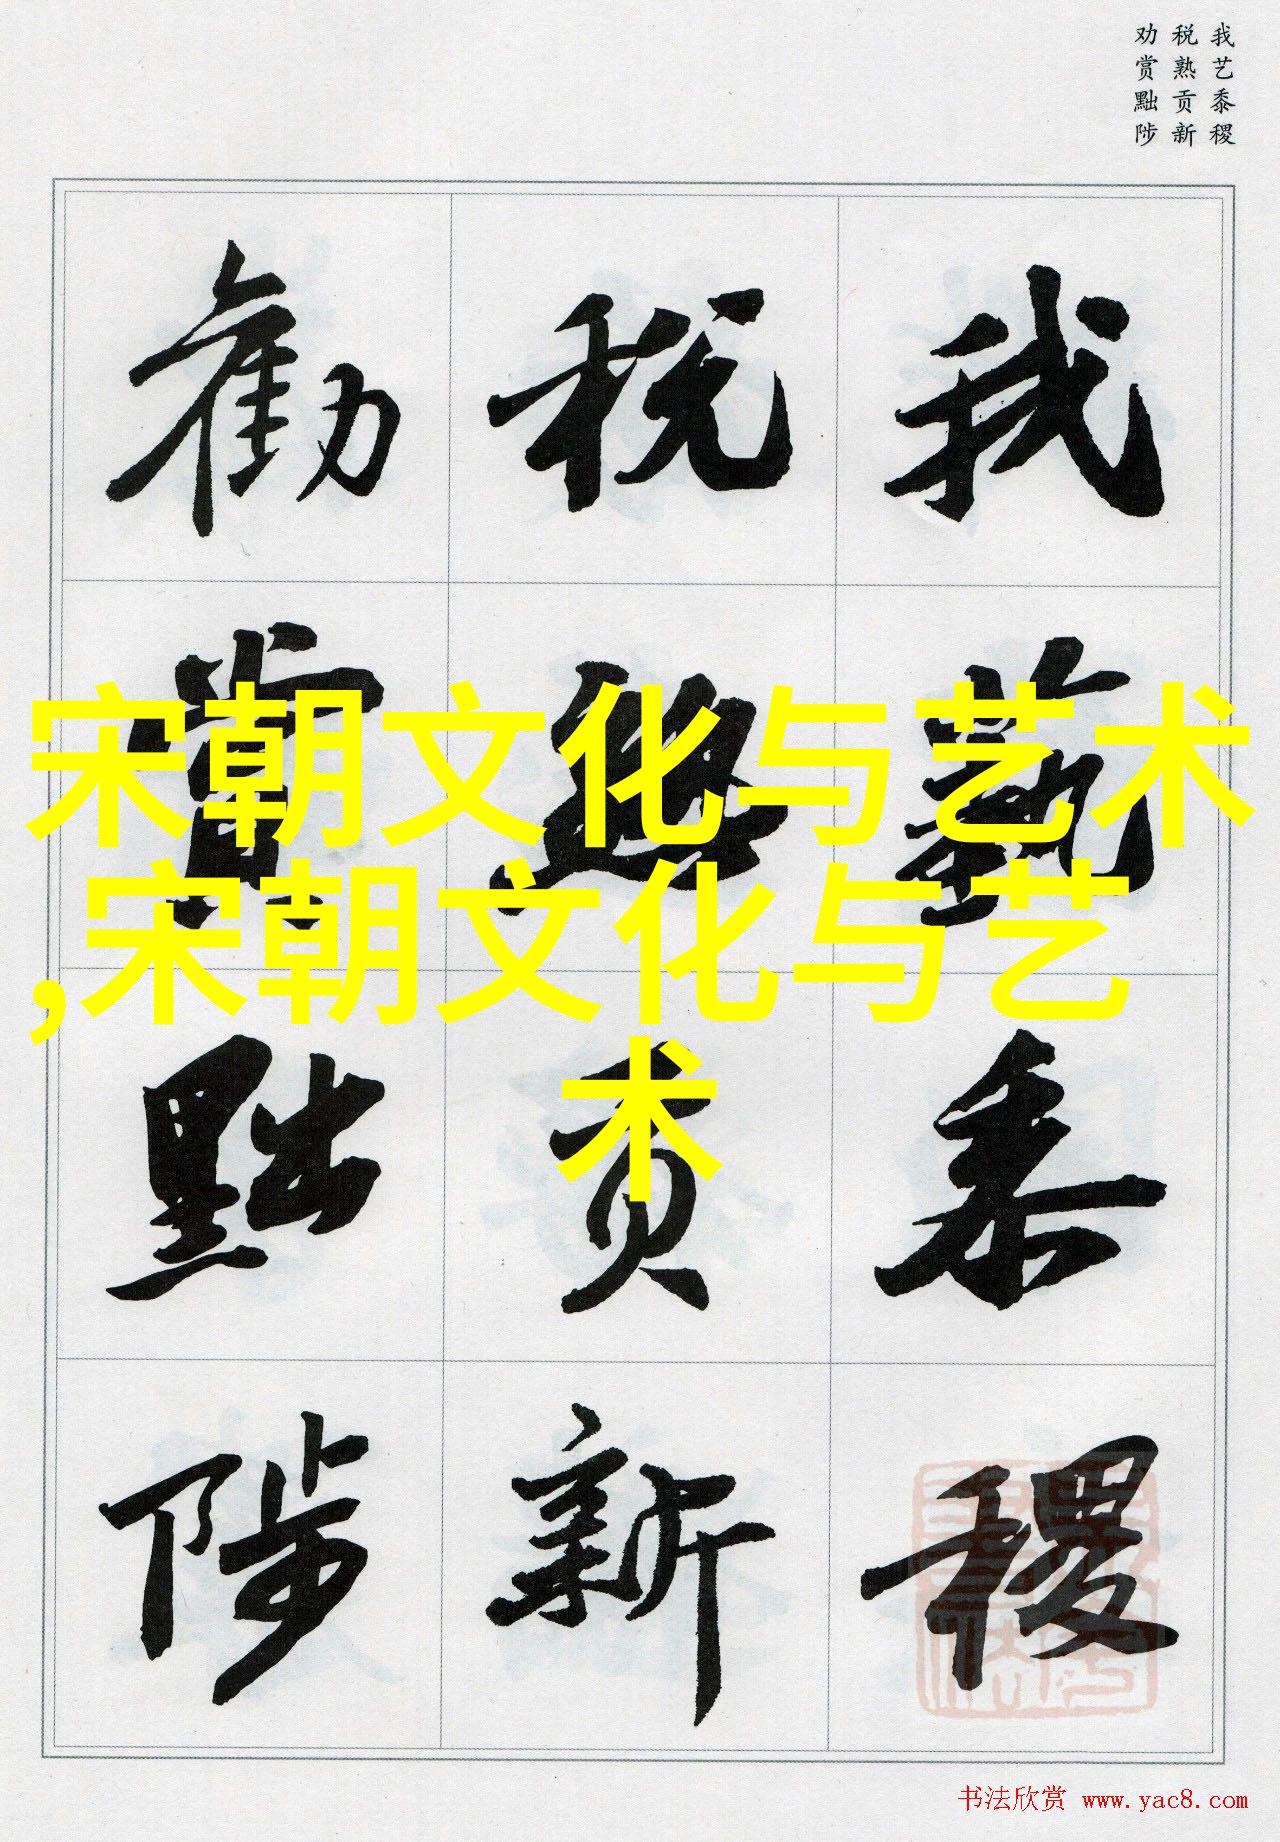 我艺黍稷
税熟贡新
劝赏黜陟
我藝黍稷
税熟贡新
勸賞黜陟
宋朝文化与艺术
,宋朝文化与艺
术
书法欣赏 www.yac8.com